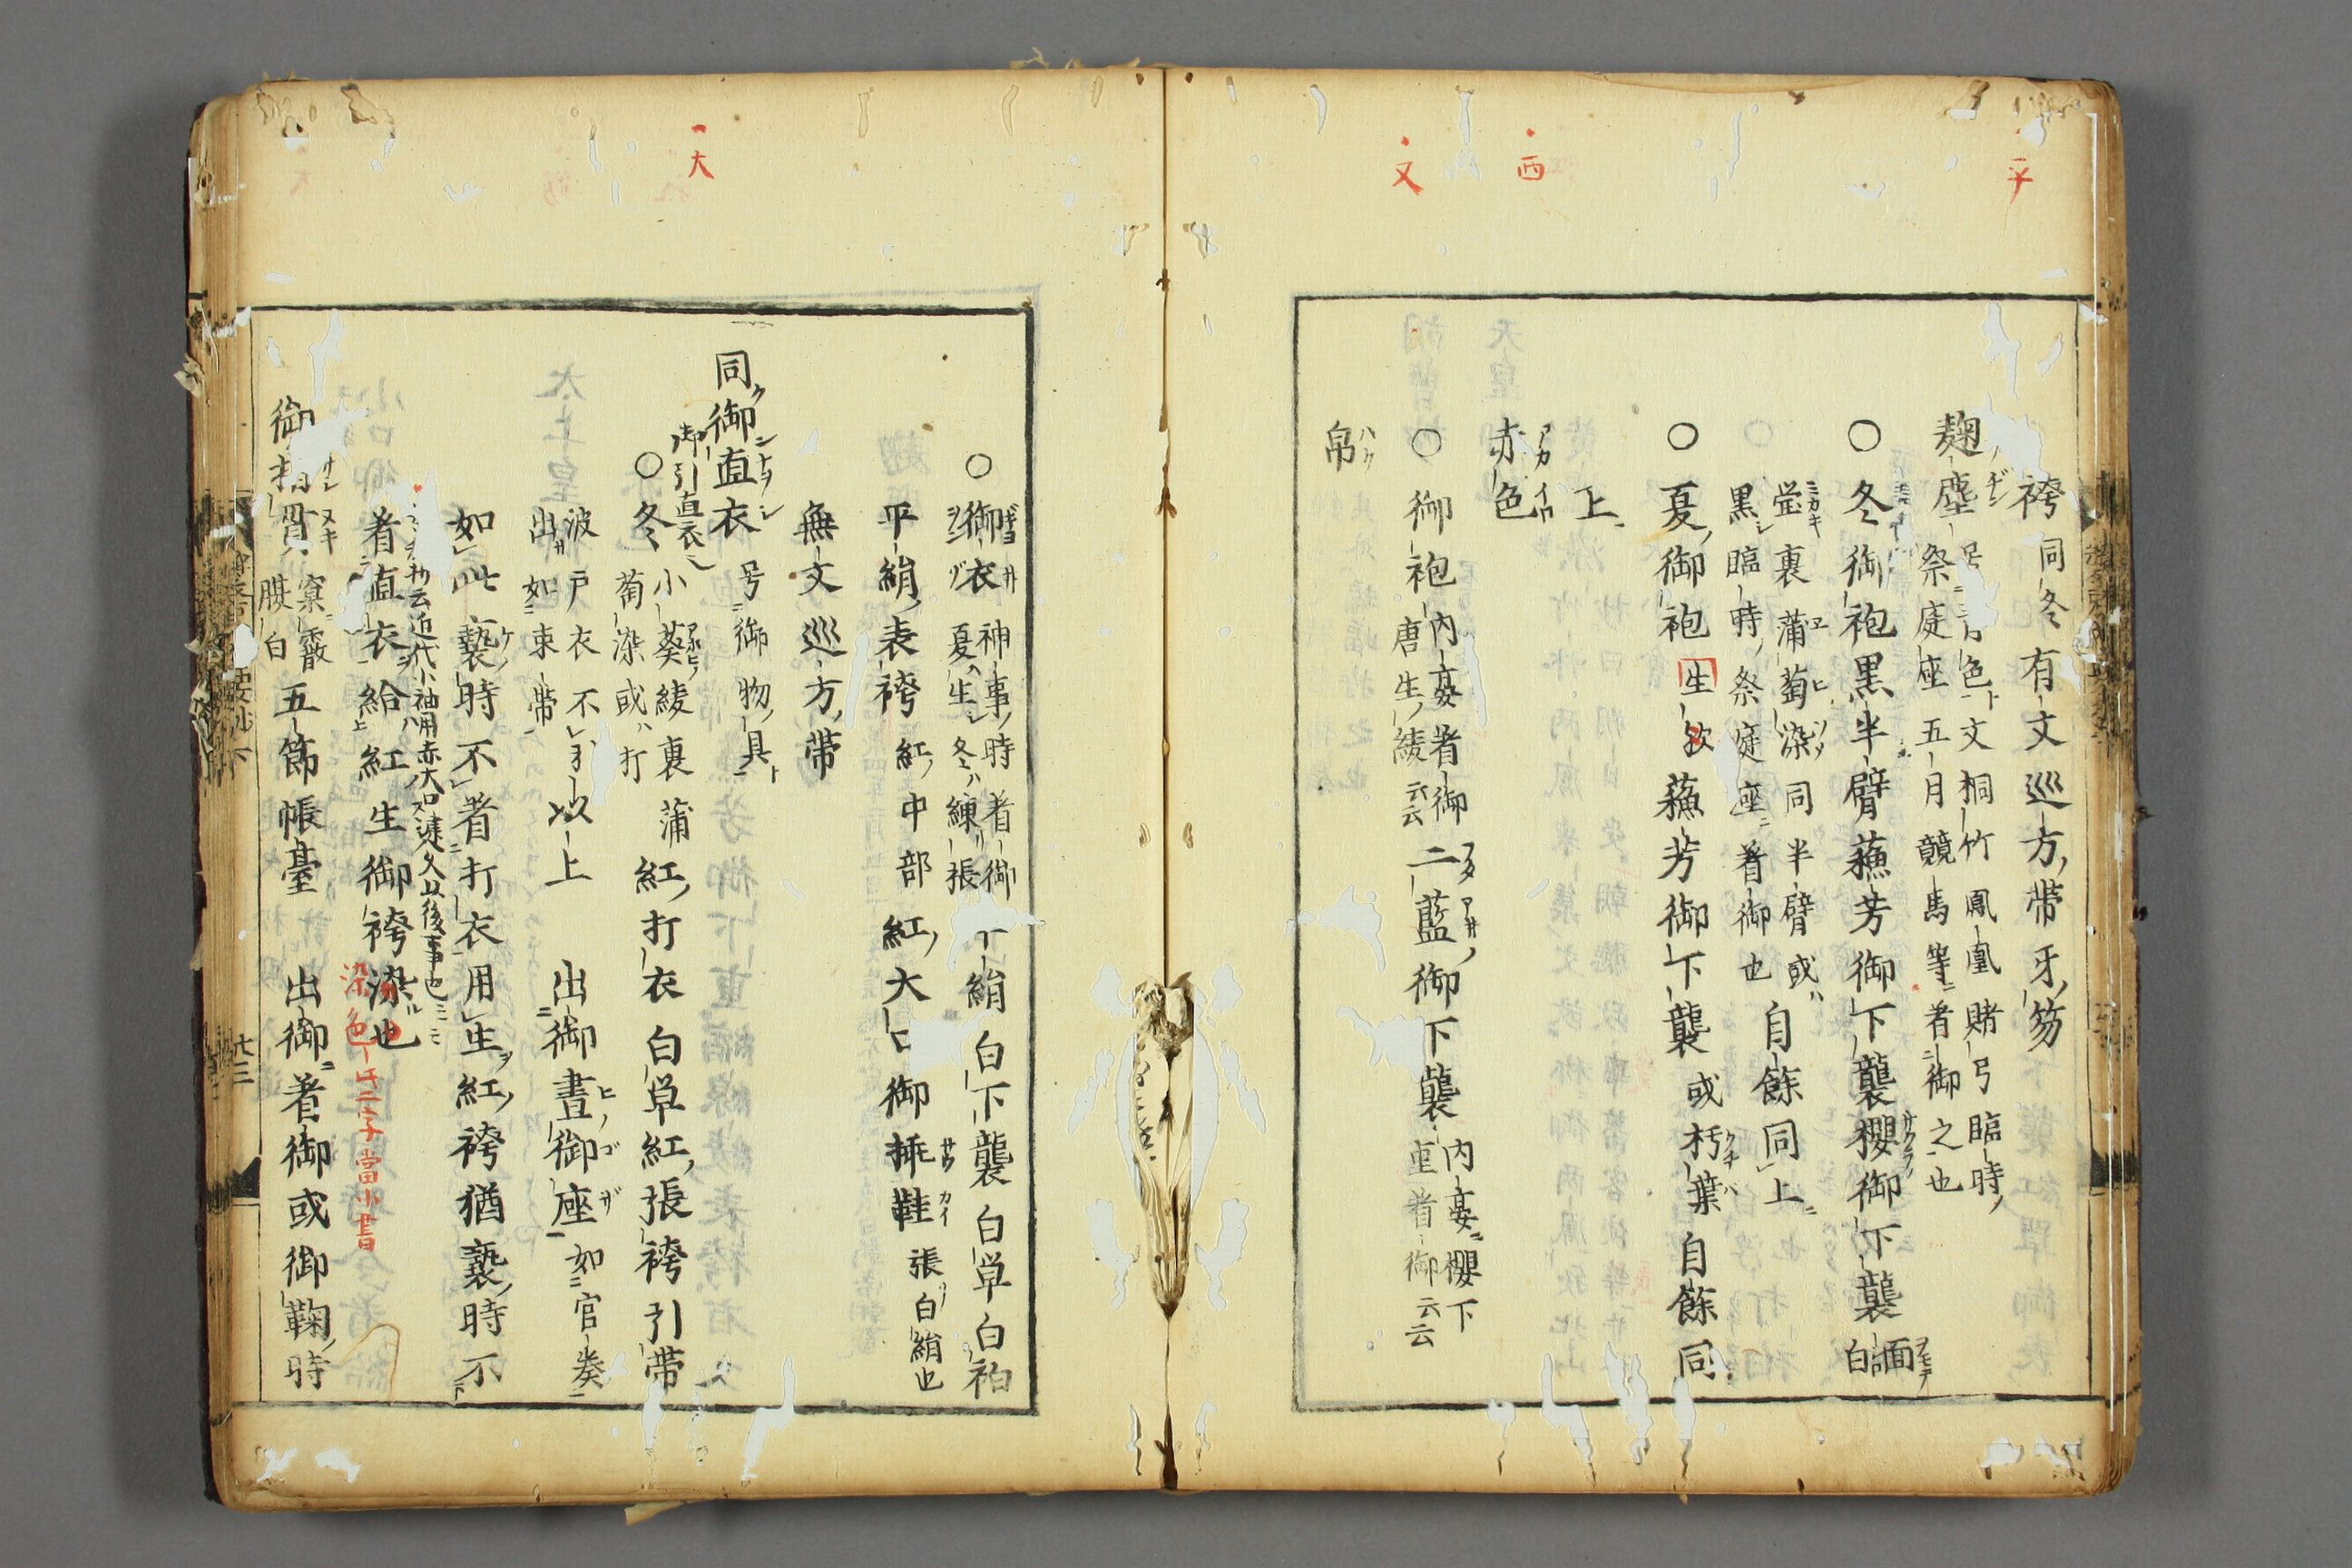 袴同冬有文巡方帯牙笏
麹塵
号青色ト文桐竹鳳凰賭弓臨時
祭庭座五月競馬等著御之也
○冬御袍黒半臂蘓芳御下襲櫻御下襲面白
瑩裏蒲萄染同半臂或ハ
黒臨時祭庭座ニ着御也
自餘同上
○夏御袍生欤蘓芳御下襲或朽葉自餘同
上
赤色
○御袍
内宴着御
唐生綾云云
二藍御下襲
内宴櫻下
重着御云云
帛
○御衣
神事時着御
夏ハ生冬ハ練張
絹白下襲白単白袙
平絹表袴紅中部紅大口御挿鞋張白絹也
無文巡方帯
同御直衣号御物具ト
御引直衣
○冬
小葵綾裏蒲
萄染或ハ打
紅打衣白単紅張袴引帯
波戸衣不
出如束帯
以上
出御晝御座如官奏
如此褻時不着打衣用生紅袴猶褻時不
近代小袖用赤大口建久以後事也
着直衣給ハ紅生御袴染也
染色二字當小書
御指貫
窠霰
䐈白
五節帳臺出御著御或御鞠時
平
西
又
大
六十三